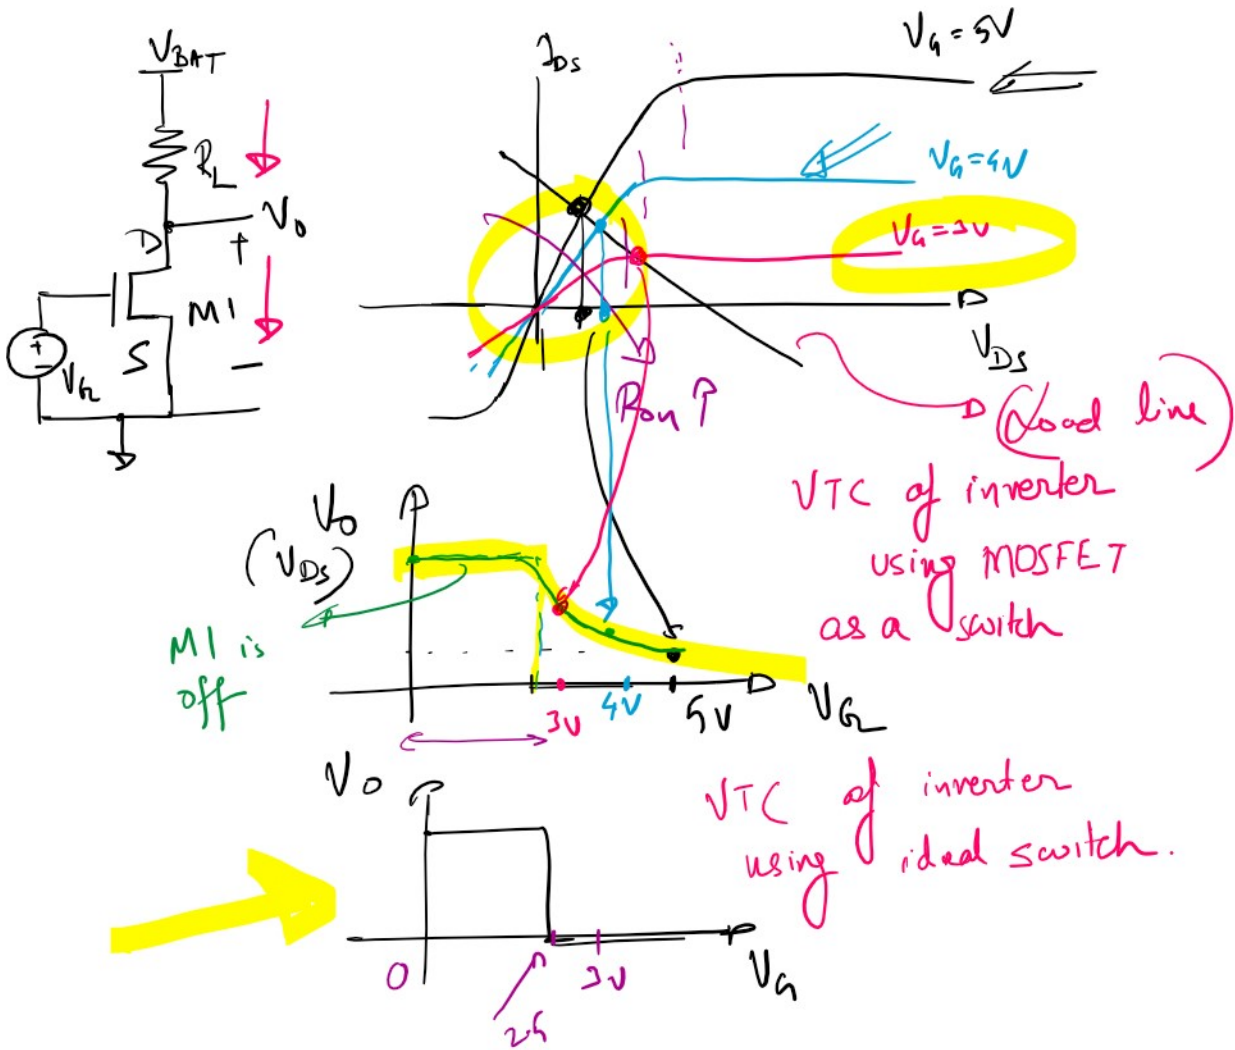 VBAT
RL
D
VO
+
M1
S
−
+
VG
IDS
VG = 5V
VG = 4V
VG = 3V
VDS
Ron ↑
(Load line)
VTC of inverter
using MOSFET
as a switch
VO
(VDS)
M1 is
off
3V
4V
5V
VG
VO
VTC of inverter
using ideal switch.
0
2.5
3V
VG